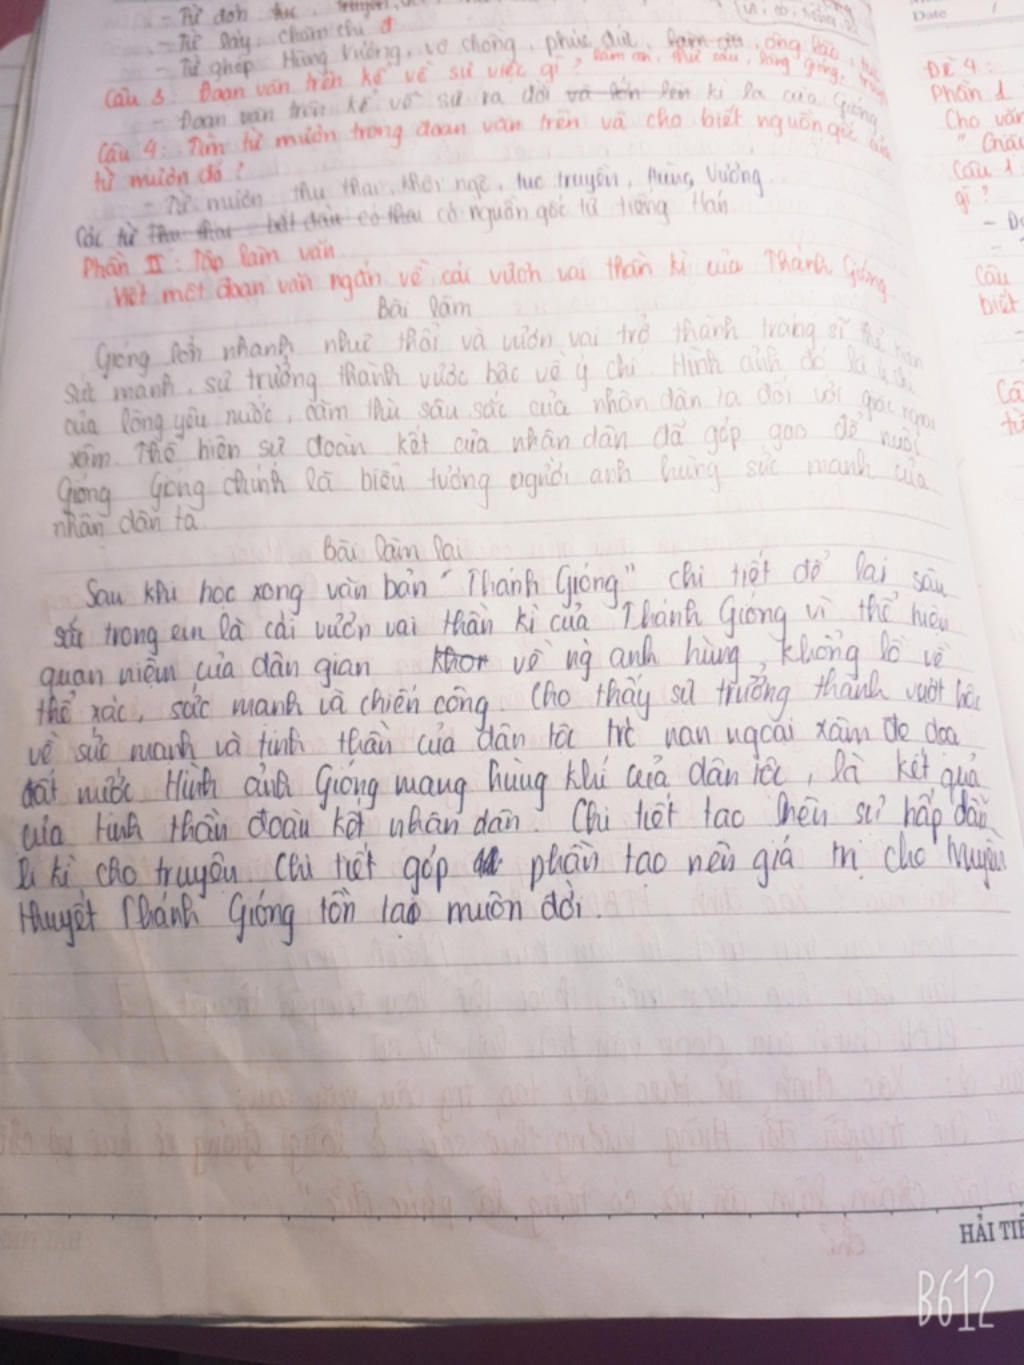 - Từ đơn
- Từ láy: chăm chỉ
- Từ ghép Hùng Vương, vợ chồng, phúc đức, ông lão,
Câu 3: Đoạn văn trên kể về sự việc gì? làm ăn, làng gióng,
- Đoạn văn trên kể về sự ra đời và lớn lên kì lạ của Gióng
Câu 4: Tìm từ mượn trong đoạn văn trên và cho biết nguồn gốc của
từ mượn đó?
- Từ mượn thụ thai, khôi ngô, tục truyền, Hùng Vương
Các từ có nguồn gốc từ tiếng Hán
Phần II: Tập làm văn
Viết một đoạn văn ngắn về cái vươn vai thần kì của Thánh Gióng
Bài làm
Gióng lớn nhanh như thổi và vươn vai trở thành tráng sĩ thể hiện
sức mạnh, sự trưởng thành vược bậc về ý chí. Hình ảnh đó là ý chí
của lòng yêu nước, căm thù sâu sắc của nhân dân ta đối với giặc ngoại
xâm. Thể hiện sự đoàn kết của nhân dân đã góp gạo để nuôi
Gióng Gióng chính là biểu tượng người anh hùng sức mạnh của
nhân dân ta.
Bài làm lại
Sau khi học xong văn bản "Thánh Gióng" chi tiết để lại sâu
sắc trong em là cái vươn vai thần kì của Thánh Gióng vì thể hiện
quan niệm của dân gian về ng anh hùng, khổng lồ về
thể xác, sức mạnh và chiến công. Cho thấy sự trưởng thành vượt bậc
về sức mạnh và tinh thần của dân tộc trc nạn ngoại xâm đe dọa
đất nước Hình ảnh Gióng mang hùng khí của dân tộc, là kết quả
của tinh thần đoàn kết nhân dân. Chi tiết tạo nên sự hấp dẫn
li kì cho truyện Chi tiết góp phần tạo nên giá trị cho truyền
thuyết Thánh Gióng tồn tại muôn đời.
HẢI TIẾ
B612
Date /
ĐỀ 4:
Phần 1
Cho văn
Câu 1:
gì?
Câu
biết
Câ
từ